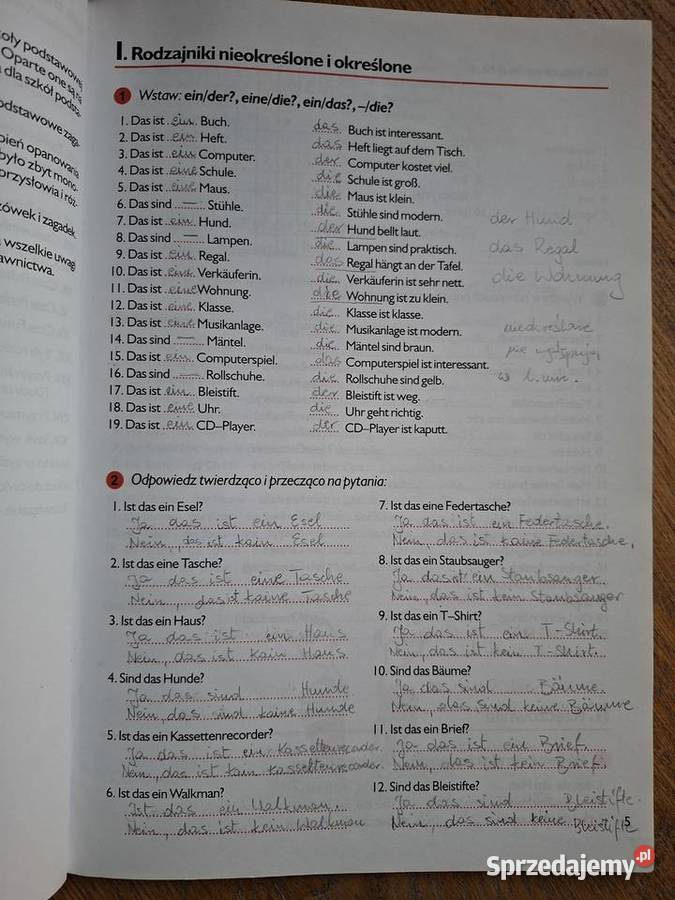 oły podstawowej
Oparte one są na
dla szkół podsta-
odstawowe zaga-
pień opanowania
było zbyt mono-
orzysłowia i róż-
zówek i zagadek.
wszelkie uwagi
awnictwa.
I. Rodzajniki nieokreślone i określone
1 Wstaw: ein/der?, eine/die?, ein/das?, –/die?
1. Das ist ein Buch. das Buch ist interessant.
2. Das ist ein Heft. das Heft liegt auf dem Tisch.
3. Das ist ein Computer. der Computer kostet viel.
4. Das ist eine Schule. die Schule ist groß.
5. Das ist eine Maus. die Maus ist klein.
6. Das sind — Stühle. die Stühle sind modern.
7. Das ist ein Hund. der Hund bellt laut. der Hund
8. Das sind — Lampen. die Lampen sind praktisch.
9. Das ist ein Regal. das Regal hängt an der Tafel. das Regal
10. Das ist eine Verkäuferin. die Verkäuferin ist sehr nett. die Wohnung
11. Das ist eine Wohnung. die Wohnung ist zu klein.
12. Das ist eine Klasse. die Klasse ist klasse.
13. Das ist eine Musikanlage. die Musikanlage ist modern. nieokreślone
14. Das sind — Mäntel. die Mäntel sind braun. nie występują
15. Das ist ein Computerspiel. das Computerspiel ist interessant.
16. Das sind — Rollschuhe. die Rollschuhe sind gelb. w l. mn.
17. Das ist ein Bleistift. der Bleistift ist weg.
18. Das ist eine Uhr. die Uhr geht richtig.
19. Das ist ein CD–Player. der CD–Player ist kaputt.
2 Odpowiedz twierdząco i przecząco na pytania:
1. Ist das ein Esel?
Ja das ist ein Esel
Nein, das ist kain Esel
2. Ist das eine Tasche?
Ja das ist eine Tasche
Nein, das ist kaine Tasche
3. Ist das ein Haus?
Ja das ist ein Haus
Nein, das ist kain Haus
4. Sind das Hunde?
Ja das sind Hunde
Nein das sind kaine Hunde
5. Ist das ein Kassettenrecorder?
Ja das ist ein Kassettenrecorder.
Nein das ist kain Kassektenrecorder.
6. Ist das ein Walkman?
Ist das ein Walkman.
Nein, das ist kein Walkman
7. Ist das eine Federtasche?
Ja das ist ein Federtasche.
Nein, das ist kaine Federtasche,
8. Ist das ein Staubsauger?
Ja das ist ein Staubsauger.
Nein das ist kein Staubsauger
9. Ist das ein T–Shirt?
Ja das ist ein T-Shirt.
Nein, das ist kein T-Shirt.
10. Sind das Bäume?
Ja das sind Bäume.
Nein, das sind keine Bäume
11. Ist das ein Brief?
Ja das ist ein Brief
Nein das ist kein Brief.
12. Sind das Bleistifte?
Ja das sind Bleistifte.
Nein, das sind keine Bleistifte
5
Sprzedajemy.pl